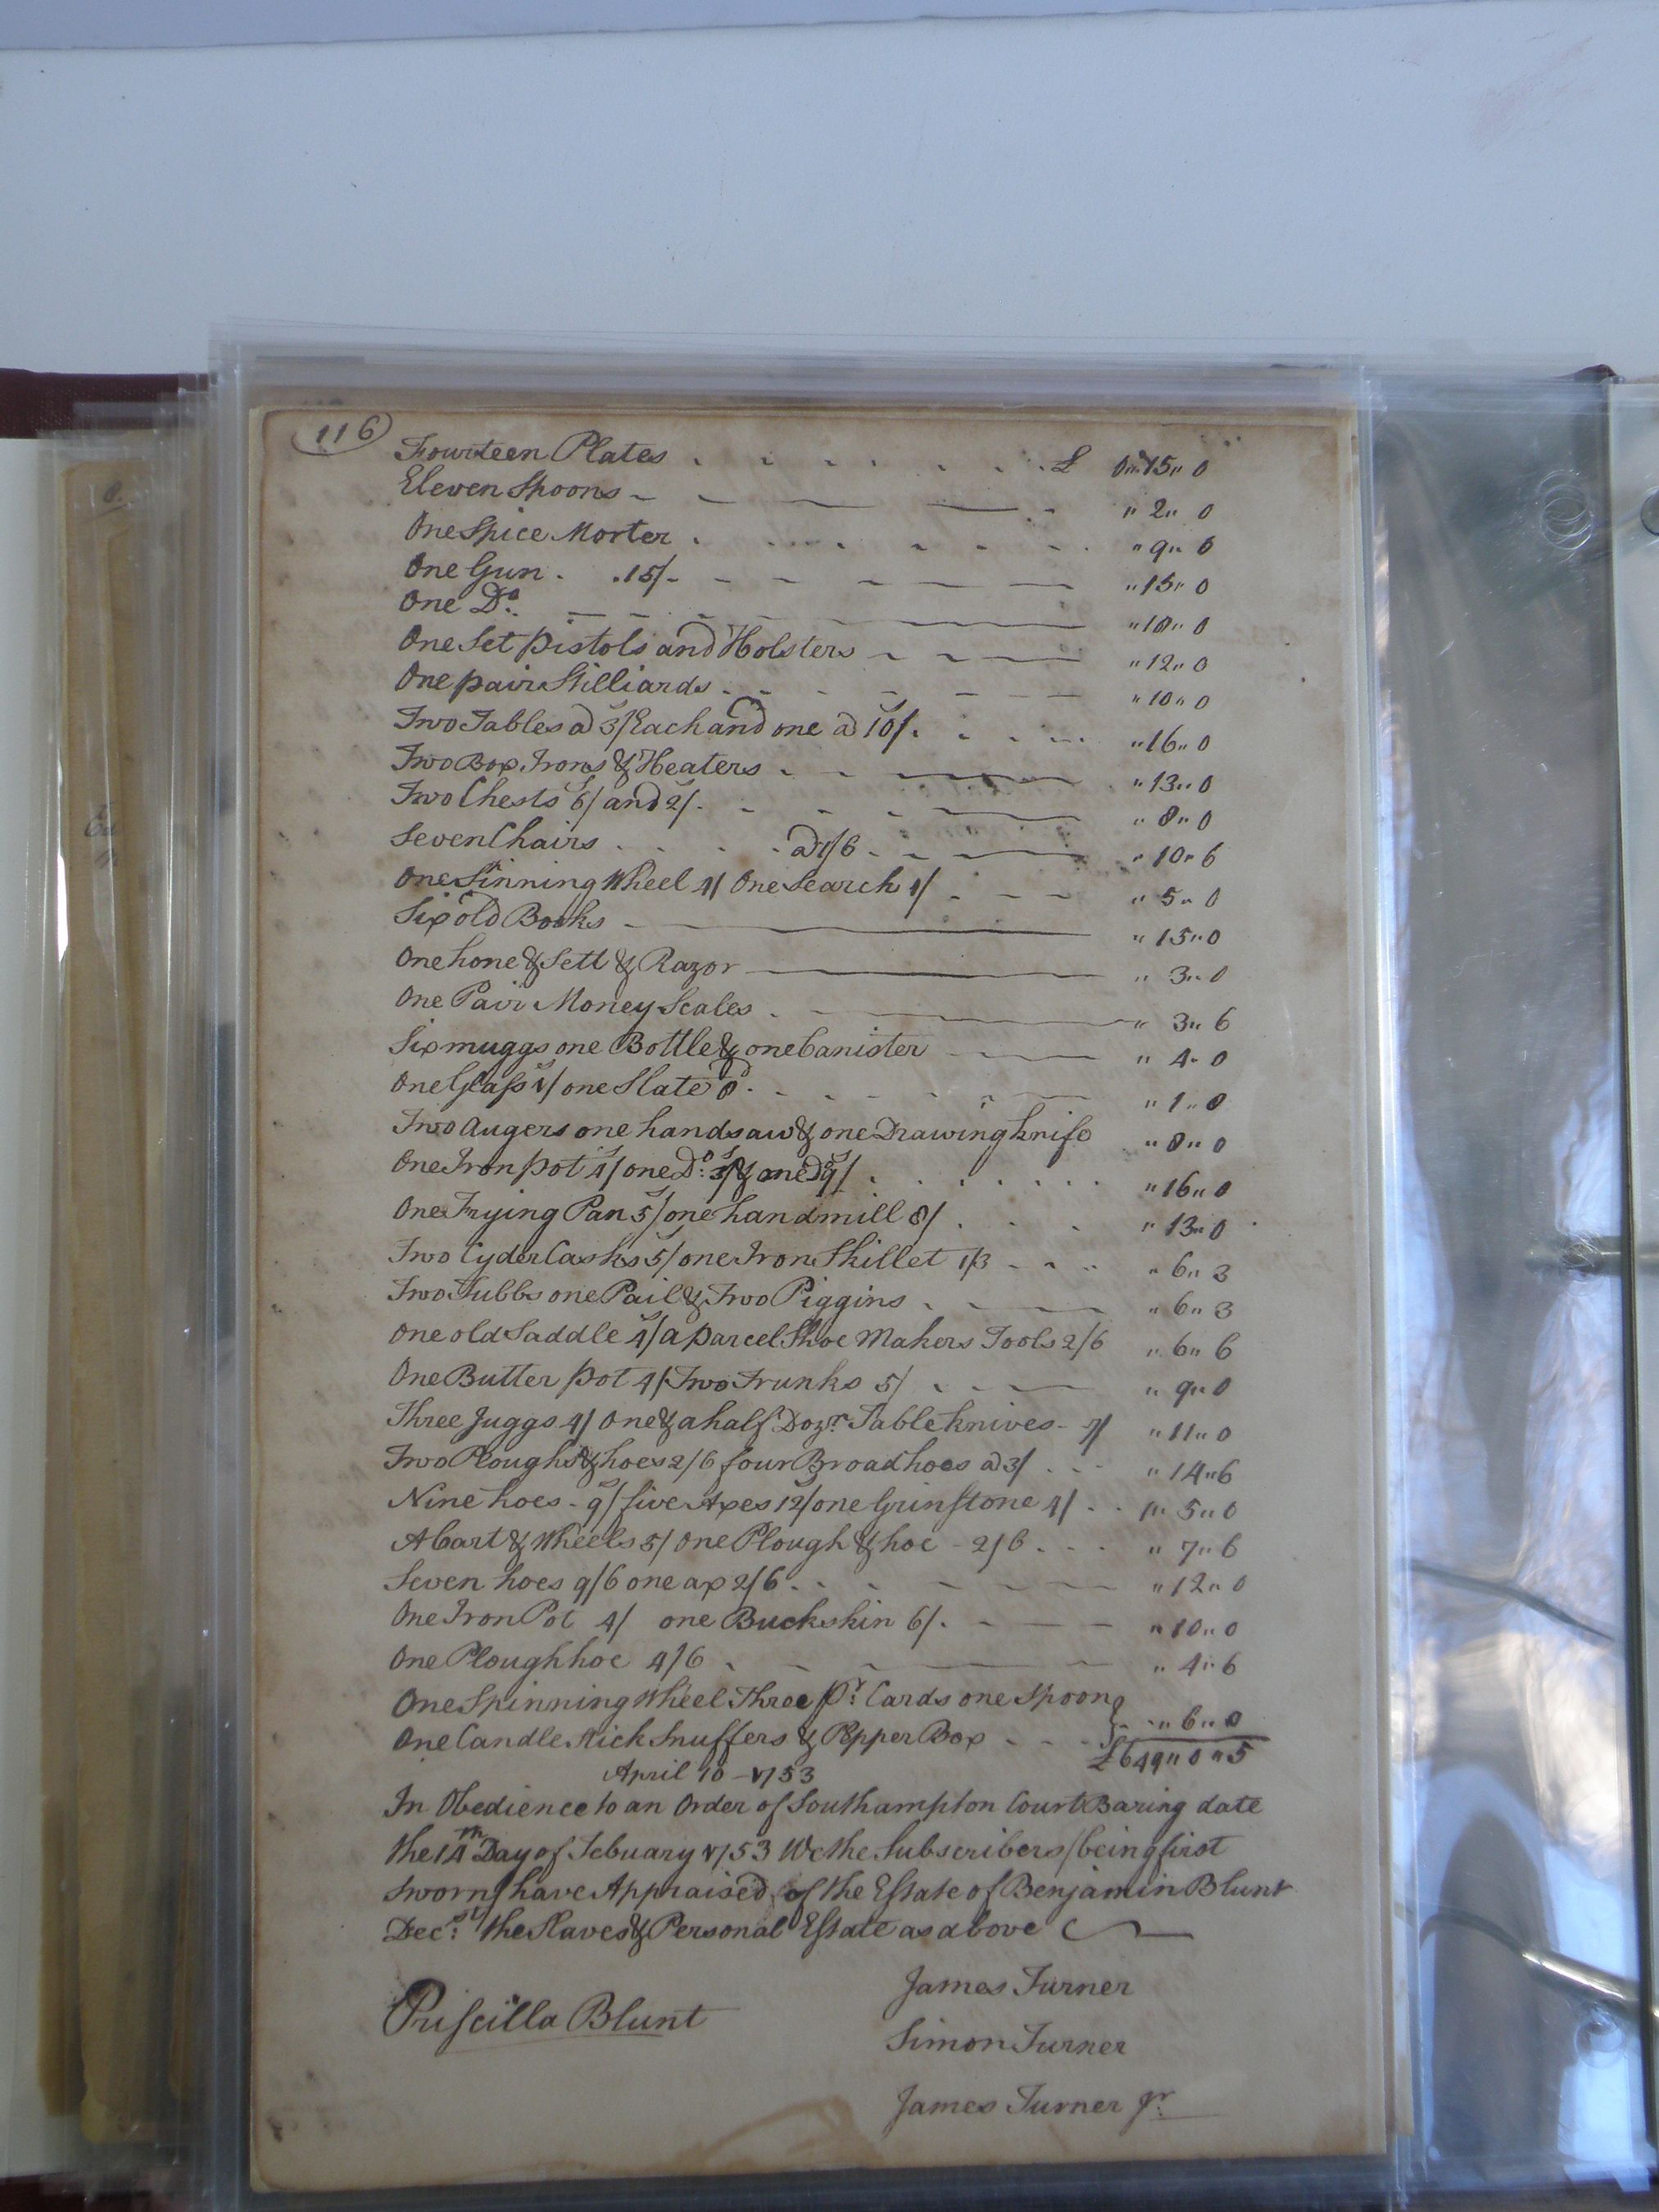 116
Fourteen Plates . . . . . . . £ 0"15"0
Eleven Spoons - " 2" 0
One Spice Morter . " 9" 0
One Gun . . 15/- " 15" 0
One Do. " 10" 0
One Set pistols and Holsters " 12" 0
One pair Stilliards " 10" 0
Two Tables @ 3/ Each and one @ 10/. " 16" 0
Two Box Irons & Heaters " 13" 0
Two Chests 6/ and 2/. " 8" 0
Seven Chairs . . . . @ 1/6 " 10" 6
One Sinning Wheel 4/ One Search 1/ " 5" 0
Six old Books " 15" 0
One hone & Sett & Razor " 3" 0
One Pair Money Scales " 3" 6
Six muggs one Bottle & one Canister " 4" 0
One Glass 1/ one Slate 8d. " 1" 8
Two augers one handsaw & one Drawing knife " 8" 0
One Iron pot 4/ one Do. 3/ & one Do 9/ " 16" 0
One Frying Pan 5/ one handmill 8/ " 13" 0
Two Cyder Casks 5/ one Iron Skillet 1/3 " 6" 3
Two Tubbs one Pail & Two Piggins " 6" 3
One old Saddle 4/ a parcel Shoe Makers Tools 2/6 " 6" 6
One Butter pot 4/ Two Trunks 5/ " 9" 0
Three Juggs 4/ One & a half Dozn. Table knives - 7/ " 11" 0
Two Ploughs & hoes 2/6 four Broad hoes @ 3/ " 14" 6
Nine hoes - 9/ five Axes 12/ one Grinstone 4/ 1" 5" 0
A Cart & Wheels 5/ One Plough & hoe - 2/6 " 7" 6
Seven hoes 9/6 one ax 2/6 " 12" 0
One Iron Pot 4/ one Buckskin 6/. " 10" 0
One Plough hoe 4/6 " 4" 6
One Spinning Wheel Three pr. Cards one Spoon
One Candle Stick Snuffers & Pepper Box " 6" 0
£649" 0" 5
April 10 - 1753
In Obedience to an Order of Southampton Court Baring date
the 14th Day of Febuary 1753 We the Subscribers (being first
sworn) have Appraised of the Estate of Benjamin Blunt
Decsd. the Slaves & Personal Estate as above
James Turner
Priscilla Blunt
Simon Turner
James Turner Jr.